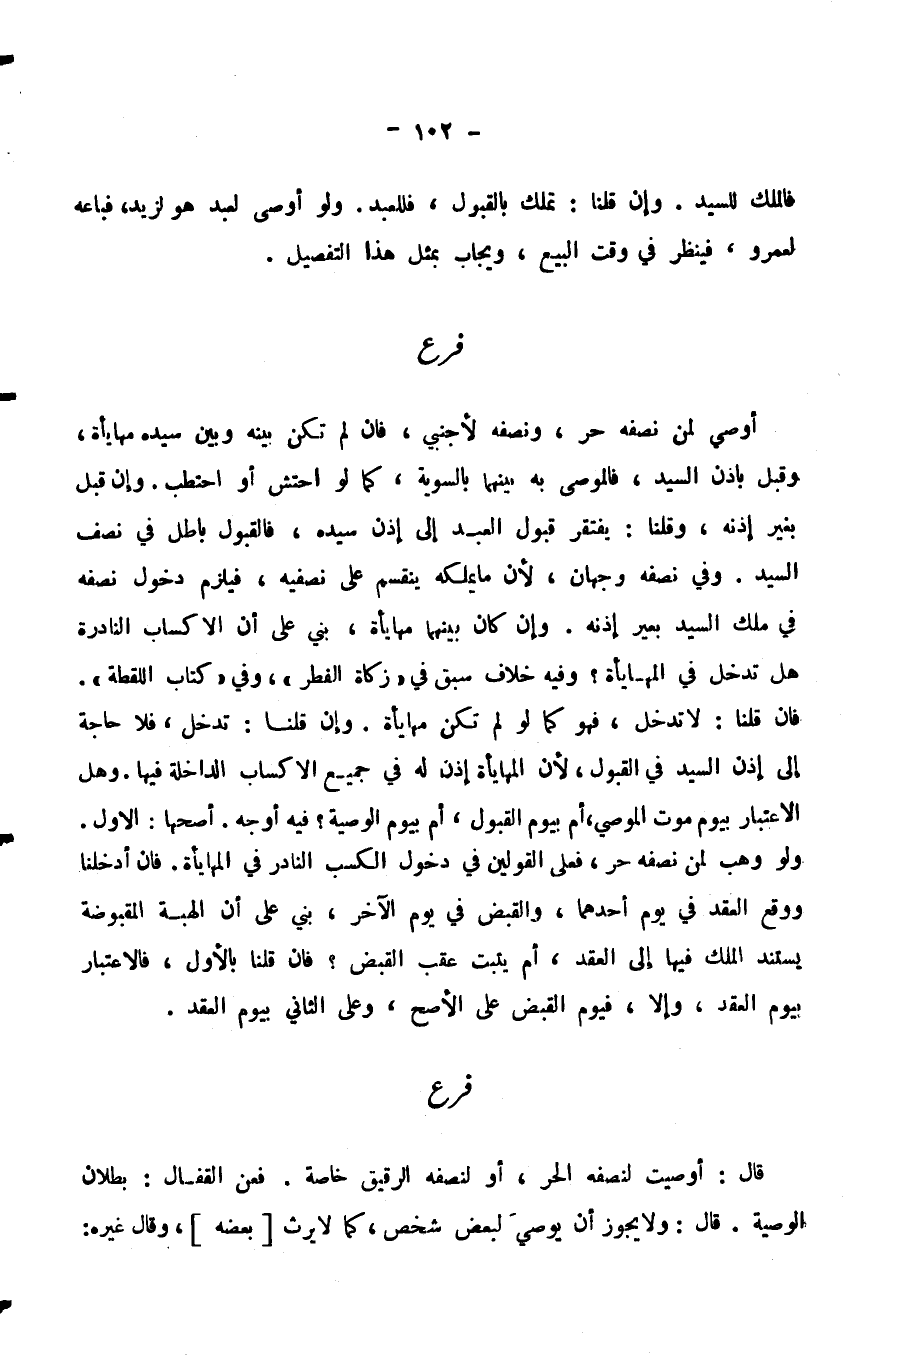 - ١٠٢ -
فالملك للسيد . وإن قلنا : تملك بالقبول ، فللعبد . ولو أوصى لعبد هو لزيد، فباعه
لعمرو ، فينظر في وقت البيع ، ويجاب بمثل هذا التفصيل .
فرع
أوصي لمن نصفه حر ، ونصفه لأجنبي ، فان لم تكن بينه وبين سيده مهايأة ،
وقبل باذن السيد ، فالموصى به بينهما بالسوية ، كما لو احتش أو احتطب . وإن قبل
بغير إذنه ، وقلنا : يفتقر قبول العبد إلى إذن سيده ، فالقبول باطل في نصف
السيد . وفي نصفه وجهان ، لأن مايملكه ينقسم على نصفيه ، فيلزم دخول نصفه
في ملك السيد بغير إذنه . وإن كان بينهما مهايأة ، بني على أن الاكساب النادرة
هل تدخل في المهايأة ؟ وفيه خلاف سبق في « زكاة الفطر » ، وفي « كتاب اللقطة » .
فان قلنا : لاتدخل ، فهو كما لو لم تكن مهايأة . وإن قلنا : تدخل ، فلا حاجة
إلى إذن السيد في القبول ، لأن المهايأة إذن له في جميع الاكساب الداخلة فيها . وهل
الاعتبار بيوم موت الموصي، أم بيوم القبول ، أم بيوم الوصية ؟ فيه أوجه . أصحها : الاول .
ولو وهب لمن نصفه حر ، فعلى القولين في دخول الكسب النادر في المهايأة . فان أدخلنا
ووقع العقد في يوم أحدهما ، والقبض في يوم الآخر ، بني على أن الهبة المقبوضة
يستند الملك فيها إلى العقد ، أم يثبت عقب القبض ؟ فان قلنا بالأول ، فالاعتبار
بيوم العقد ، وإلا ، فيوم القبض على الأصح ، وعلى الثاني بيوم العقد .
فرع
قال : أوصيت لنصفه الحر ، أو لنصفه الرقيق خاصة . فعن القفال : بطلان
الوصية . قال : ولايجوز أن يوصيَ لبعض شخص ، كما لايرث [ بعضه ] ، وقال غيره :